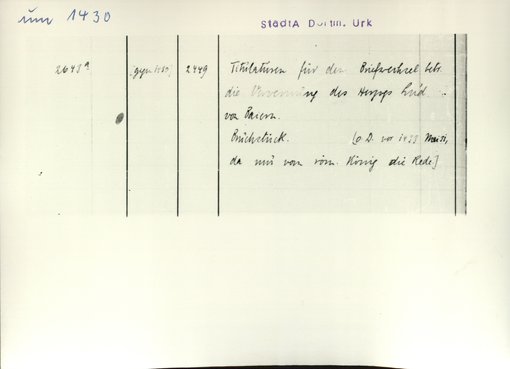 um 1430
StadtA Dortm. Urk
2643a
2449
Titulaturen für den Briefwechsel betr.
die des Herzogs Lud. ..
von Baiern.
Bruchstück. [o D. vor 1433 Mai 31,
da nur vom röm. König die Rede]